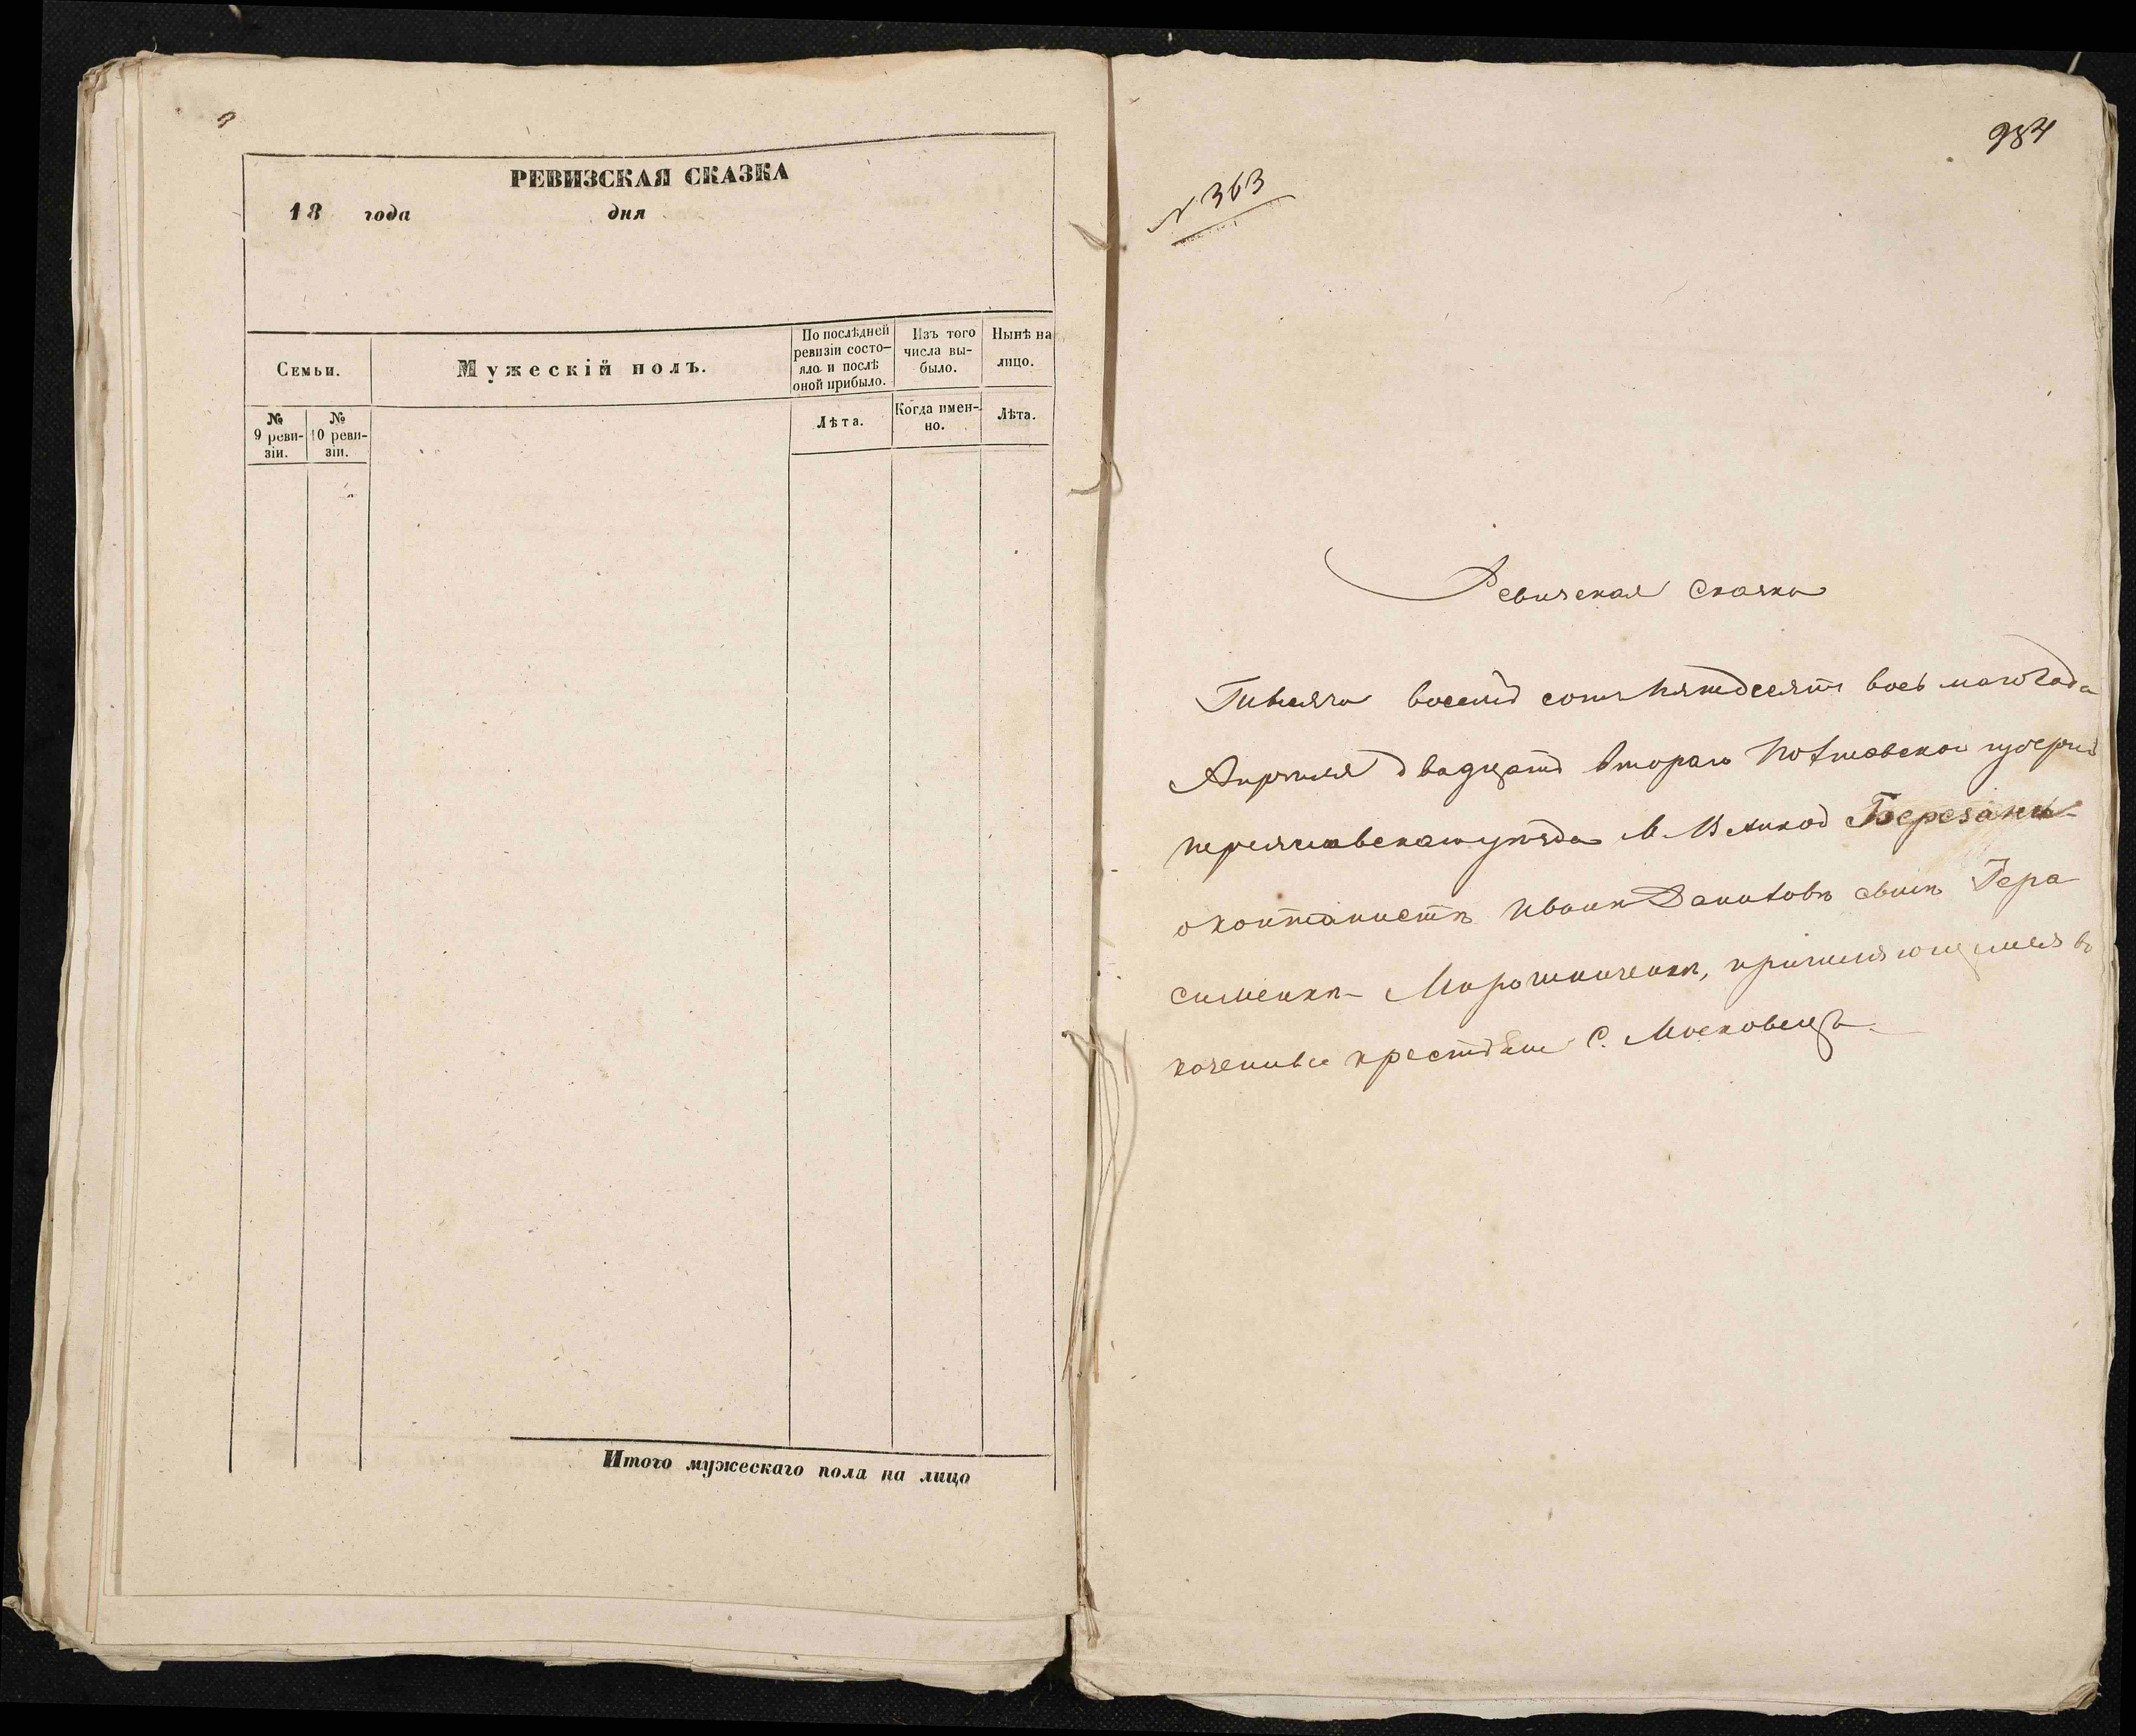 РЕВИЗСКАЯ СКАЗКА
18 года дня
Семьи.
Мужескій полъ.
По послѣдней
ревизіи состо-
яло и послѣ
оной прибыло.
Изъ того
числа вы-
было.
Нынѣ на
лицо.
№
9 реви-
зіи.
№
10 реви-
зіи.
Лѣта.
Когда имен-
но.
Лѣта.
Итого мужескаго пола на лицо
984
№ 363
Ревизская Сказка
Тысяча восемь сотъ пятдесятъ восьмаго Года
Апреля двадцать втораго Полтавской губерніи
переяславскаго уезда М. Великой Березанъ
Иванъ Даниловъ сынъ Гера
сименко Мирошниченко,
крестьяне С. Московецъ